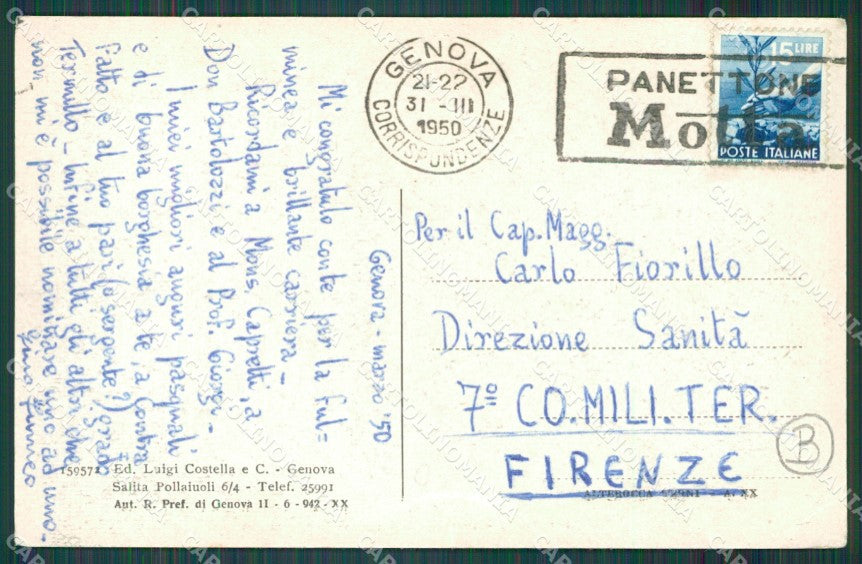 Genova - marzo '50
Mi congratulo con te per la ful=
minea e brillante carriera -
Ricordami a Mons. Capretti, a
Don Bartolozzi e al Prof. Giorgi -
I miei migliori auguri pasquali
e di buona borghesia a te, a Contra
fatto e al tuo pari (o sergente?) grado
Termillo - Infine a tutti gli altri che
non mi è possibile nominare uno ad uno -
GENOVA
21-22
31 - III
1950
CORRISPONDENZE
PANETTONE
Motta
15 LIRE
POSTE ITALIANE
Per il Cap. Magg.
Carlo Fiorillo
Direzione Sanità
7º CO. MILI. TER.
FIRENZE
B
159572 Ed. Luigi Costella e C. - Genova
Salita Pollaiuoli 6/4 - Telef. 25991
Aut. R. Pref. di Genova 11 - 6 - 942 - XX
ALTEROCCA TERNI - A. XX
CARTOLINOMANIA